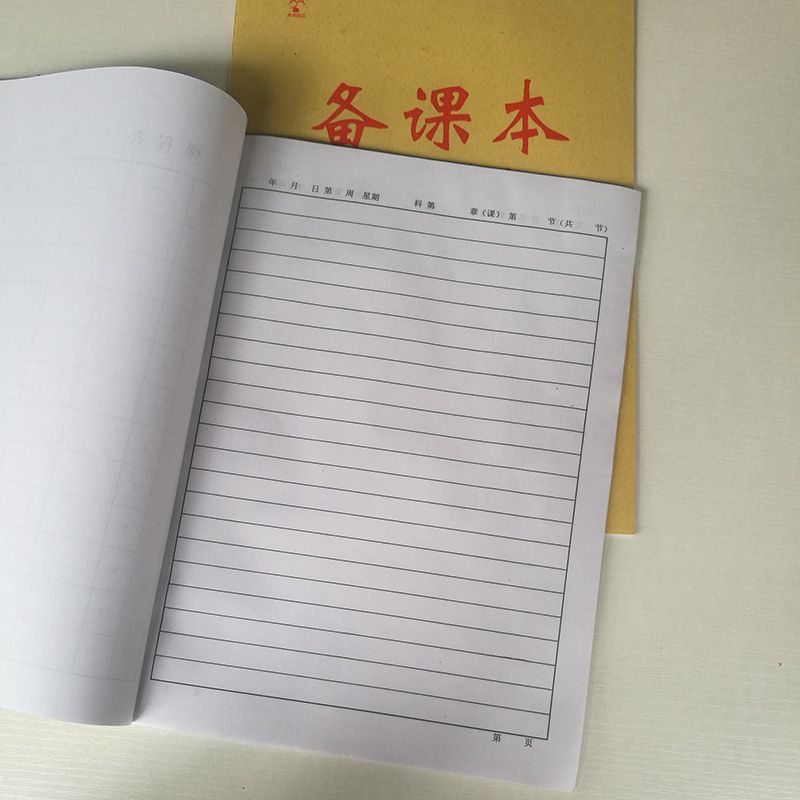 备课本
年 月 日 第 周 星期 科 第 章(课) 第 节(共 节)
第 页